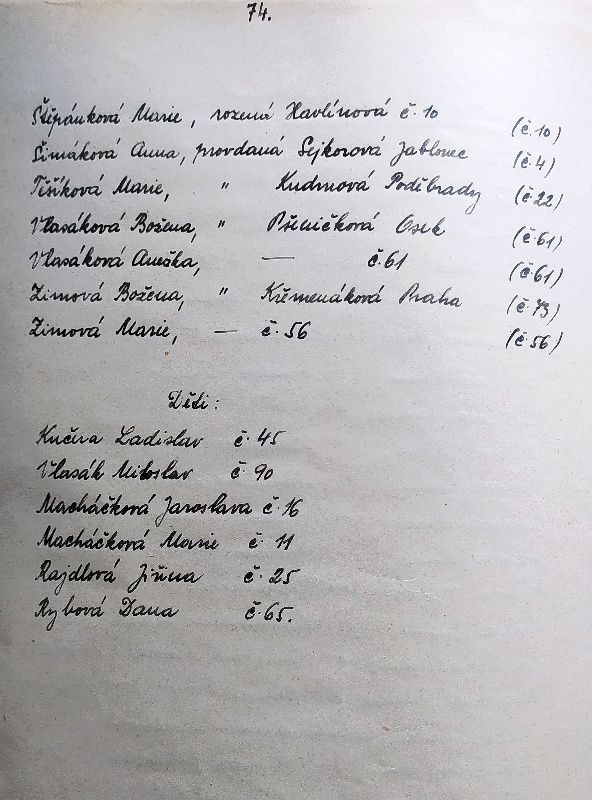 74.
Štěpánková Marie, rozená Havlínová č. 10 (č. 10)
Šimáková Anna, provdaná Sejkorová Jablonec (č. 4)
Tišíková Marie, " Kudrnová Poděbrady (č. 22)
Vlasáková Božena, " Pšeničková Osek (č. 61)
Vlasáková Anežka, — č. 61 (č. 61)
Zimová Božena, " Křemenáková Praha (č. 73)
Zimová Marie, — č. 56 (č. 56)
Děti:
Kučera Ladislav č. 45
Vlasák Miloslav č. 90
Macháčková Jaroslava č. 16
Macháčková Marie č. 11
Rajdlová Jiřina č. 25
Rybová Dana č. 65.